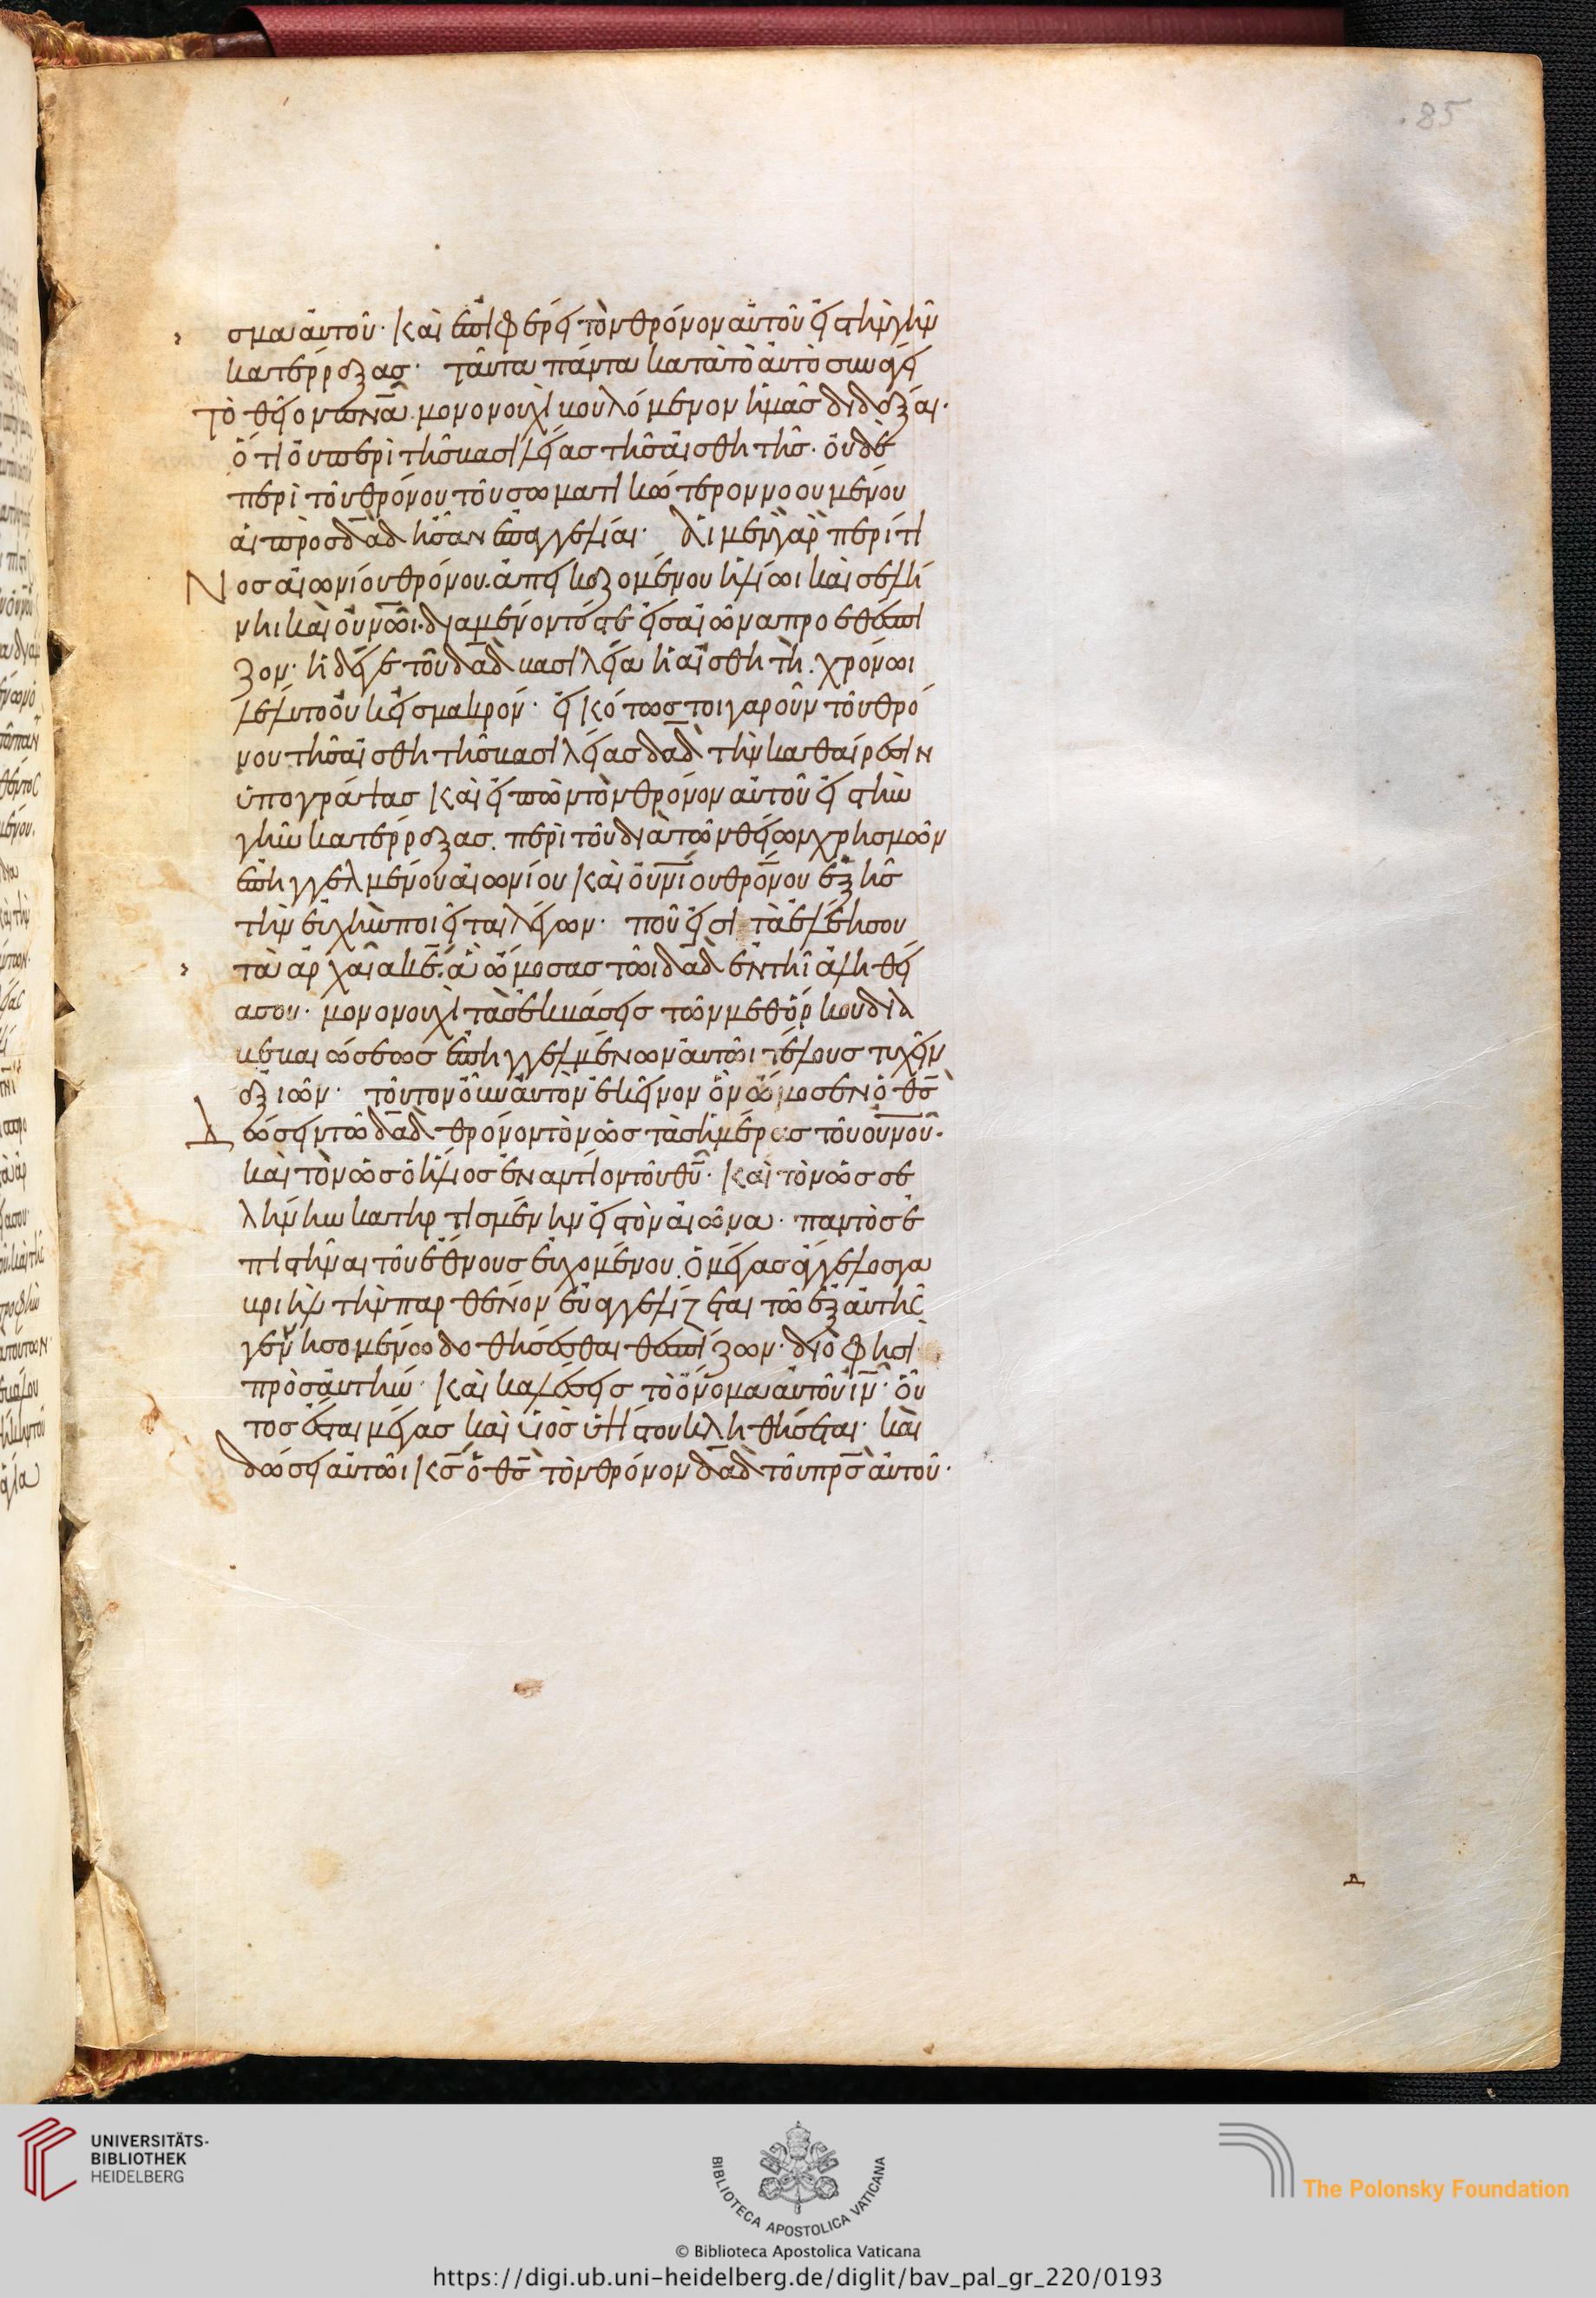 85
σμα αὐτοῦ· καὶ ἐπιφέρει τὸν θρόνον αὐτοῦ εἰς τὴν γῆν
κατέρραξας· ταῦτα πάντα κατὰ τὸ αὐτὸ συνάγει
τὸ θεῖον πνᾶ μονονουχὶ βουλόμενον ἡμᾶς διδάξαι·
ὅτι οὐ περὶ τῆς βασιλείας τῆς αἰσθητῆς· οὐδὲ
περὶ τοῦ θρόνου τοῦ σωματικώτερον νοουμένου
αἱ πρὸς δᾱδ ἦσαν ἐπαγγελίαι· αἱ μὲν γὰρ περί τι
νος αἰωνίου θρόνου. ἀπεικαζομένου ἡλίωι καὶ σελή
νηι καὶ οὐνῶι. διαμένοντός τε εἰς αἰῶνα προεθέσπι
ζον· ἡ δέ γε τοῦ δᾱδ βασιλεία ἡ αἰσθητὴ. χρόνωι
λέλυτο οὐκ εἰς μακρόν· εἰκότως τοιγαροῦν τοῦ θρό
νου τῆς αἰσθητῆς βασιλείας δᾱδ τὴν καθαίρεσιν
ὑπογράψας καὶ εἰπὼν τὸν θρόνον αὐτοῦ εἰς τὴν
γῆν κατέρραξας. περὶ τοῦ διὰ τῶν θείων χρησμῶν
ἐπηγγελμένου αἰωνίου καὶ οὐνίου θρόνου ἑξῆς
τὴν εὐχὴν ποιεῖται λέγων· ποῦ εἰσι τὰ ἐλέη σου
τὰ ἀρχαῖα κε̄. ἃ ὤμοσας τῶι δᾱδ ἐν τῆι ἀληθεί
α σου· μονονουχὶ τὰς ἐκβάσεις τῶν μεθ' ὅρκου δια
βεβαιώσεως ἐπηγγελμένων αὐτῶι τέλους τυχεῖν
ἀξιῶν· τοῦτον οὖν αὐτὸν ἐκεῖνον ὃν ὤμοσεν ὁ θς̄
δώσειν τῶ δᾱδ θρόνον τὸν ὡς τὰς ἡμέρας τοῦ οὐνοῦ·
καὶ τὸν ὡς ὁ ἥλιος ἐναντίον τοῦ θῡ· καὶ τὸν ὡς σε
λήνην κατηρτισμένην εἰς τὸν αἰῶνα· παντὸς ἐ
πιστῆναι τοῦ ἔθνους εὐχομένου. ὁ μέγας ἄγγελος γα
βριὴλ τὴν παρθένον εὐαγγελίζεται τῶ ἐξ αὐτῆς
γεννησομένω δοθήσεσθαι θεσπίζων· διό φησι
πρὸς αὐτήν· καὶ καλέσεις τὸ ὄνομα αὐτοῦ ιν̄· οὗ
τος ἔσται μέγας καὶ υἱὸς ὑψίστου κληθήσεται· καὶ
δώσει αὐτῶι κς̄ ὁ θς̄ τὸν θρόνον δᾱδ τοῦ πρς̄ αὐτοῦ·
UNIVERSITÄTS-
BIBLIOTHEK
HEIDELBERG
BIBLIOTECA APOSTOLICA VATICANA
The Polonsky Foundation
© Biblioteca Apostolica Vaticana
https://digi.ub.uni-heidelberg.de/diglit/bav_pal_gr_220/0193